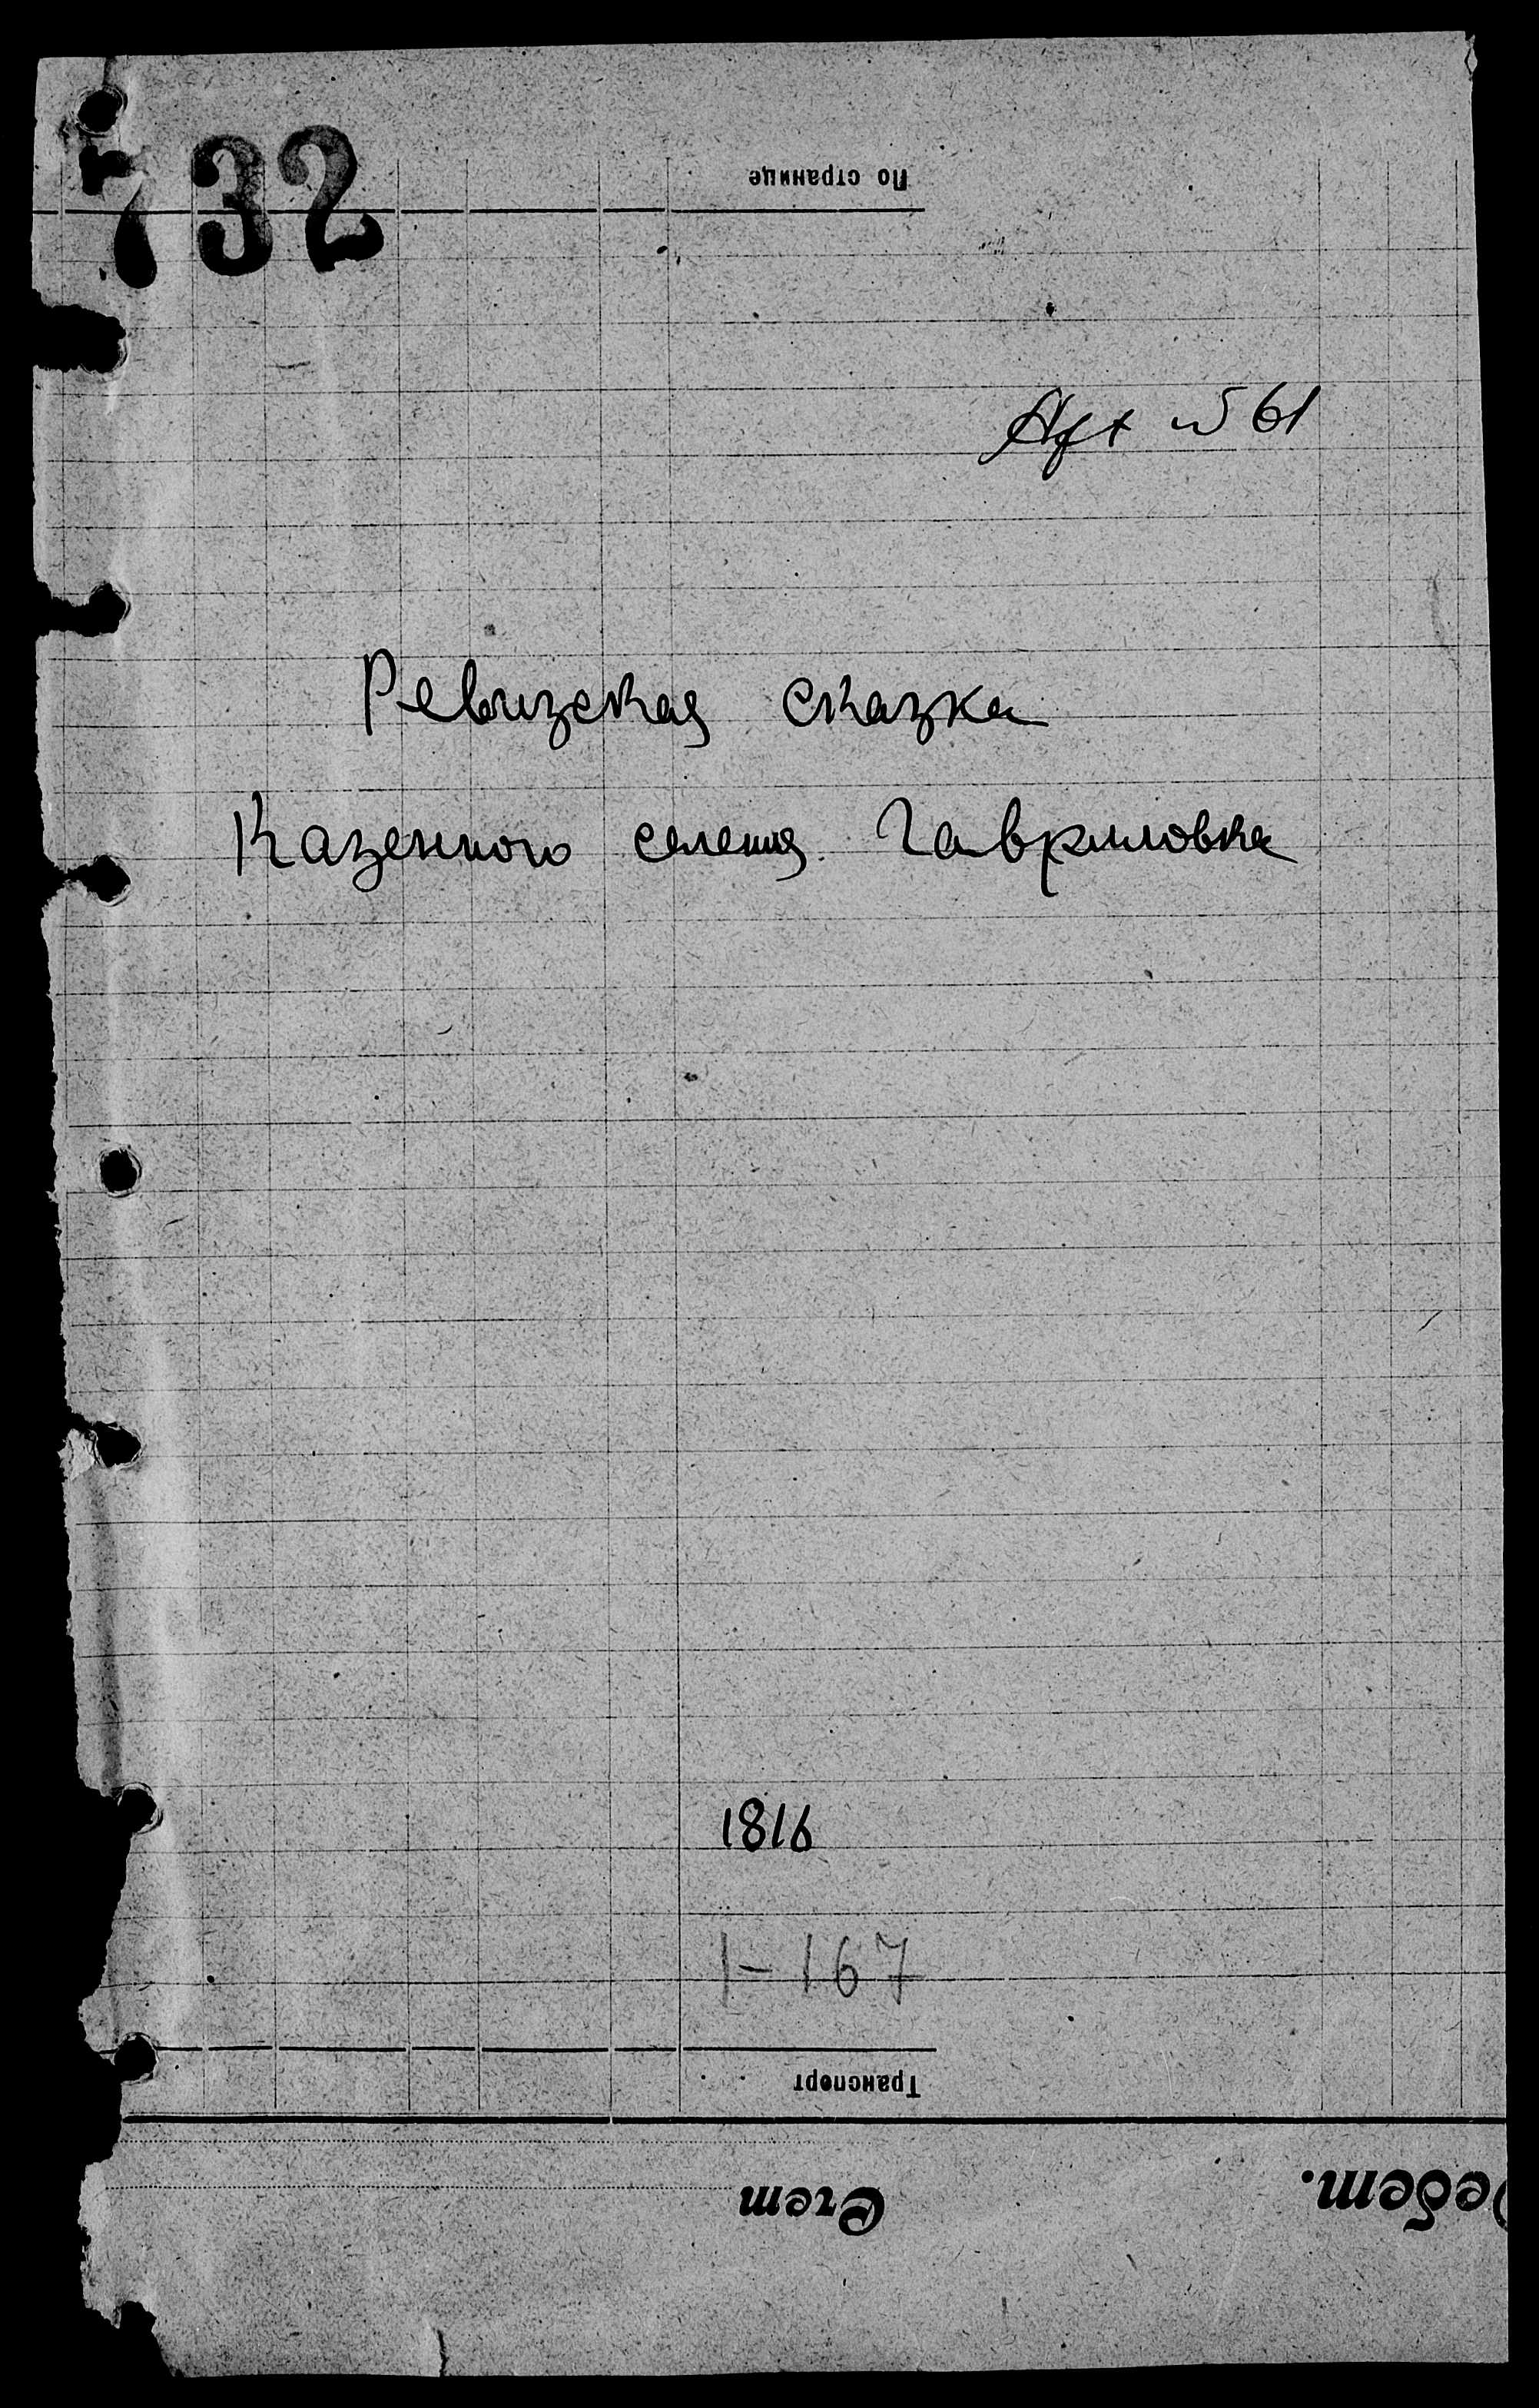 732
По странице
№ 61
Ревизская сказка
Казенного селения Гавриловка
1816
1-167
Транспорт
Счет
Дебет.